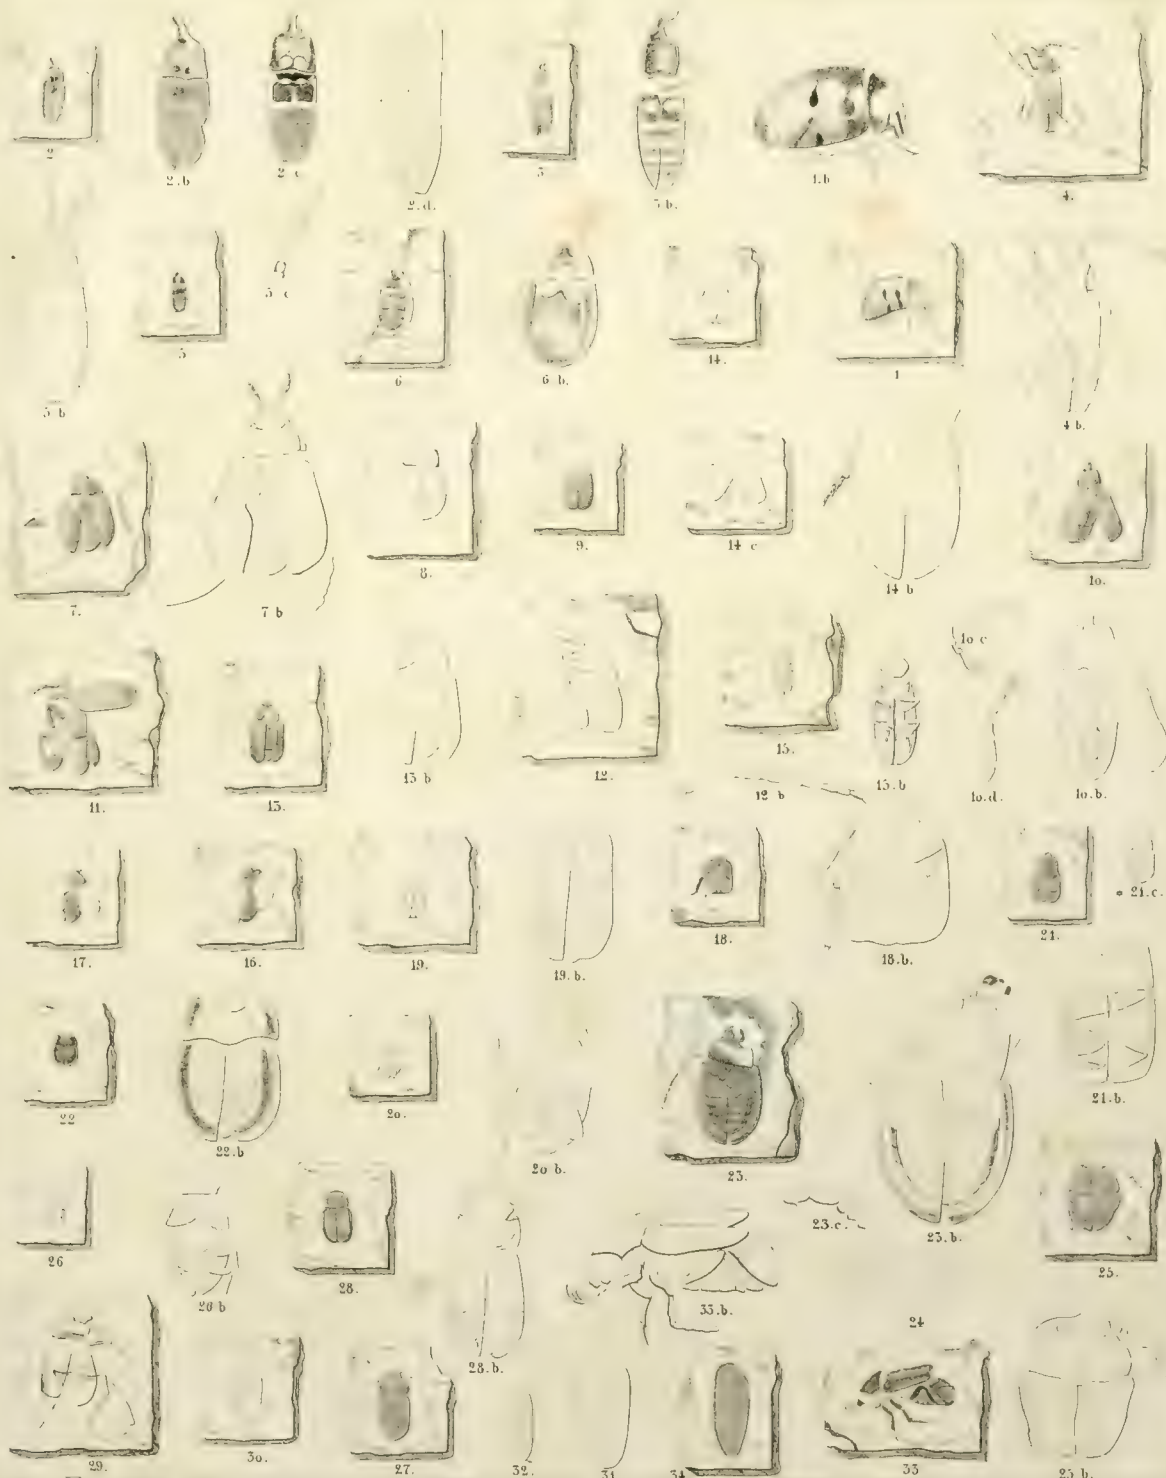 2
2.b
2.c
2.d.
3
3 b.
1.b
4.
5 b
5
5 c
6
6 b.
14.
1
4 b.
7.
7 b
8.
9.
14 c
14 b
10.
11.
13.
13 b
12.
12 b
15.
15.b
10 c
10.d.
10.b.
17.
16.
19.
19. b.
18.
18.b.
21.
21.c.
22
22.b
20.
20 b.
23.
23.b.
21.b.
26
26 b
28.
28.b.
33.b.
23.c.
24
25.
29.
30.
27.
32.
31
34
33
25 b.